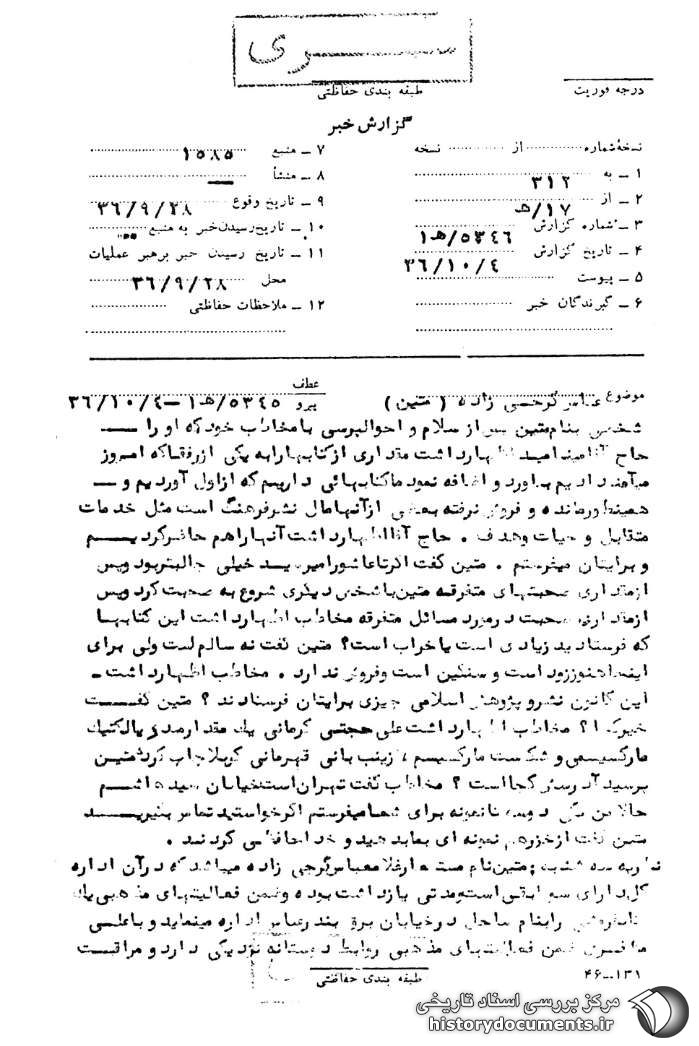 سری
طبقه بندی حفاظتی
درجه فوریت
گزارش خبر
نسخهٔ شماره از نسخه
۱ ـ به ۳۱۲
۲ ـ از ۱۷/هـ
۳ ـ شماره گزارش ۵۳۴۶/هـ۱
۴ ـ تاریخ گزارش ۳۶/۱۰/۴
۵ ـ پیوست
۶ ـ گیرندگان خبر
۷ ـ منبع ۱۵۸۵
۸ ـ منشأ ـ
۹ ـ تاریخ وقوع ۳۶/۹/۲۸
۱۰ ـ تاریخ رسیدن خبر به منبع
۱۱ ـ تاریخ رسیدن خبر برهبر عملیات
محل ۳۶/۹/۲۸
۱۲ ـ ملاحظات حفاظتی
موضوع زاده (متین)
عطف
پیرو ۵۳۴۵/هـ۱ ـ ۳۶/۱۰/۴
شخصی بنام متین پس از سلام و احوالپرسی با مخاطب خود که او را
حاج آقا مینامید اظهار داشت مقداری از کتابها را به یکی از رفقا که امروز
میآمد دادیم بیاورد و اضافه نمود ما کتابهائی داریم که از اول آوردیم و
همینطور مانده و فروش نرفته بعضی از آنها مال نشر فرهنگ است مثل خدمات
متقابل و حیات و هدف . حاج آقا اظهار داشت آنها را هم حاضر کردیم
و برایتان میفرستم . متین گفت اگر تا عاشورا میرسید خیلی جالبتر بود و پس
از مقداری صحبتهای متفرقه متین با شخص دیگری شروع به صحبت کرد و پس
از مقداری صحبت در مورد مسائل متفرقه مخاطب اظهار داشت این کتابها
که فرستادید زیادی است یا خراب است؟ متین گفت نه سالم است ولی برای
اینجا هنوز زود است و سنگین است و فروش ندارد . مخاطب اظهار داشت ـ
این کانون نشر و پژوهش اسلامی چیزی برایتان فرستادند ؟ متین گفت
خیر کجا ؟ مخاطب اظهار داشت علی حجتی کرمانی یک مقدار دیالکتیک
مارکسیسم و شکست مارکسیسم ، زینب بانی قهرمانی کربلا چاپ کرده متین
پرسید آدرسش کجا است ؟ مخاطب گفت تهران است خیابان
حالا من یکی دوسه تا نمونه برای شما میفرستم اگر خواستید تماس بگیرید
متین گفت از هر نمونه ای بما بدهید و خداحافظی کردند .
نظریه سه شنبه : متین نام مستعار غلامعباس گرجی زاده میباشد که در آن اداره
کل دارای سوابقی است و مدتی بازداشت بوده و ضمن فعالیتهای مذهبی یک
را بنام ساحل در خیابان برق بندرعباس اداره مینماید و با علی
ضمن فعالیتهای مذهبی روابط دوستانه نزدیکی دارد و مراقبت
طبقه بندی حفاظتی
۴۶-۱۳۱
مرکز بررسی اسناد تاریخی
historydocuments.ir